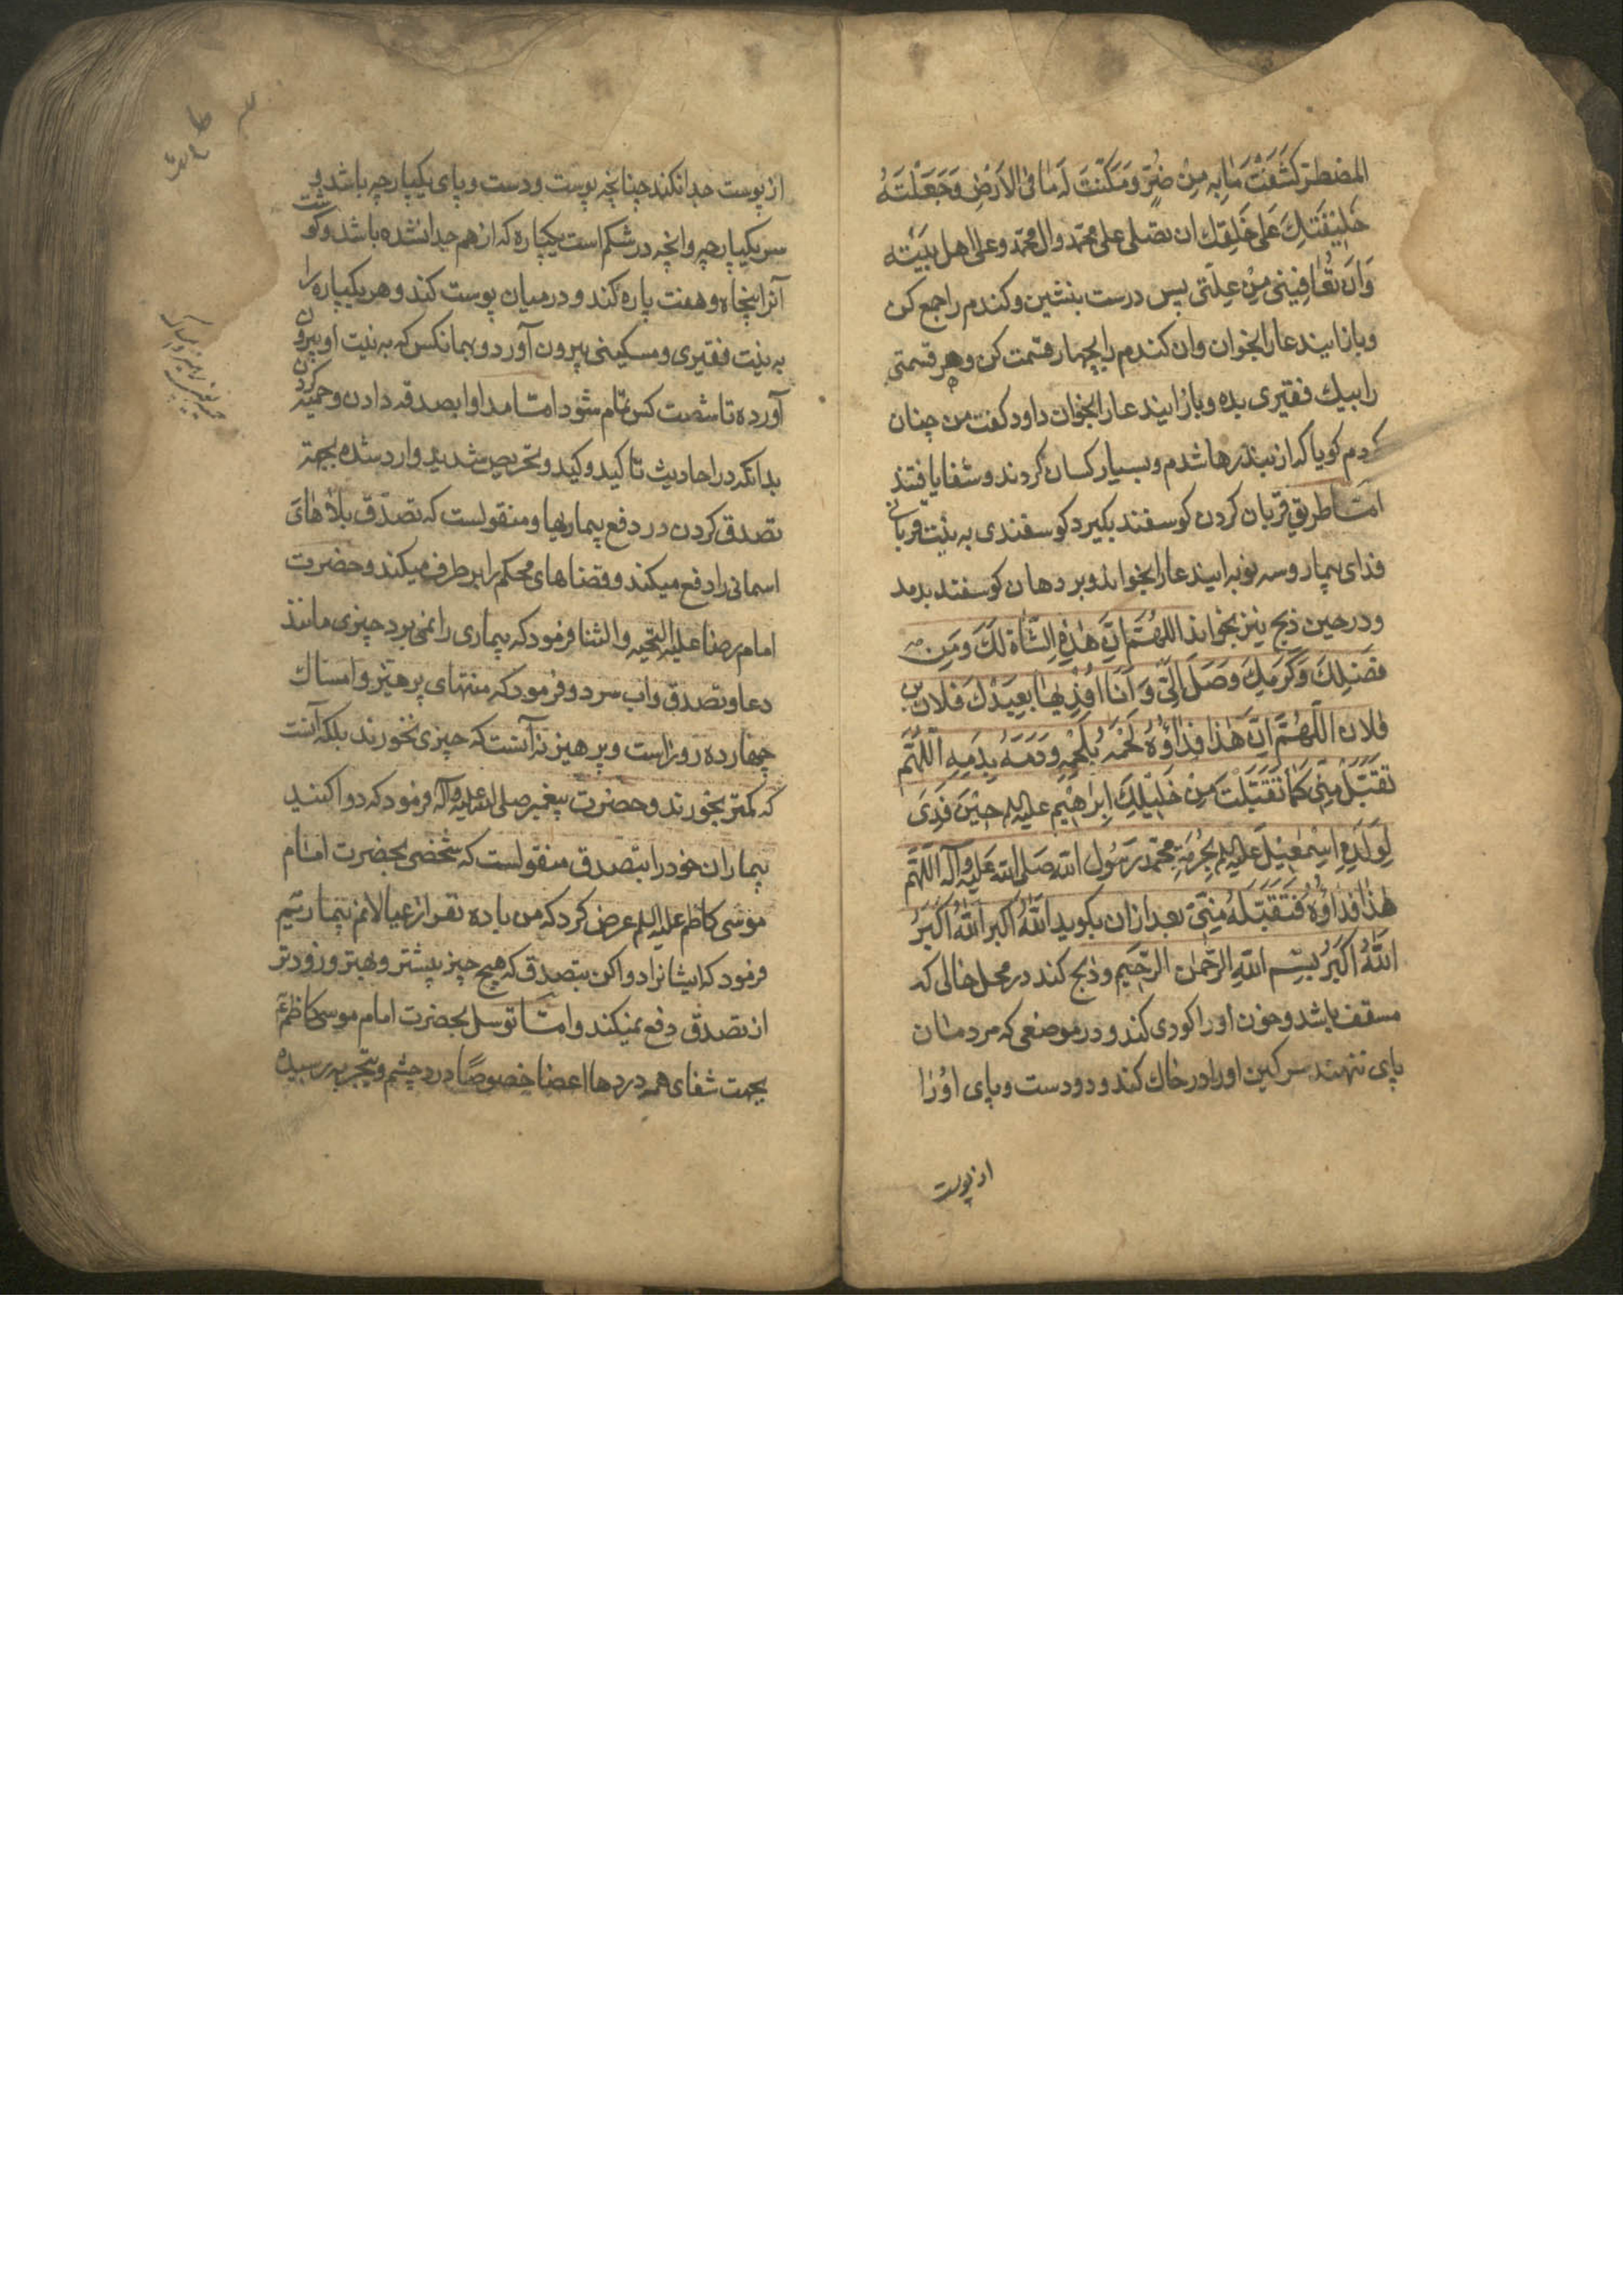 المضطر كَشَفْتَ مَا بِهِ مِنْ ضُرٍّ وَمَكَّنْتَ لَهُ مَا فِى الاَرْضِ وَجَعَلْتَهُ
خَلِيْفَتَكَ عَلى خَلقِكَ ان تصلى على محمّد وال محمّد وعلى اهل بَيْتِه
وَاَن تُعَافِيَنِى مِنْ عِلَّتِى پس درست بنشين وكندم را جمع كن
وباز ايند عا را بخوان وان كندم را بچهار قسمت كن وهر قسمتى
را بيك فقيرى بده وباز ايند عا را بخوان داود كفت من چنان
كردم كويا كه از بند رها شدم وبسيار كسان كردند وشفا يافتند
امّا طريق قربان كردن كوسفند بكيرد كوسفندى به نيّت قربانى
فداى بيمار وسه نوبه ايند عا را بخواند وبر دهان كوسفند بدمد
ودر حين ذبح نيز بخواند اللهُمَّ اِنَّ هٰذِهِ الشَّاةَ لَكَ وَمِن
فَضْلِكَ وَكَرَمِكَ وَصَلَ اِلَىَّ وَ اَنَا اَفْدِ بِهَا بعبدك فلان بن
فلان اللّهُمَّ اِنَّ هٰذَا فِدَاؤُهُ لَحْمَهُ بِلَحْمِهِ وَدَمَهُ بِدَمِهِ اَللّهُمَّ
تَقَبَّلْ مِنِّى كَمَا تَقَبَّلْتَ مِنْ خَلِيْلِكَ اِبْرٰاهِيْمَ عليه السلم حِيْنَ فَدَى
لِوَلَدِهِ اِسْمٰعِيْلَ عليه السلم بِحُرْمَةِ مُحَمّد رَسُول اللّه صَلى اللّه عَليه وَآله اَللّهُمَّ
هٰذَا فِدَاؤُهُ فَتَقَبَّلْهُ مِنِّى بعد ازان بكويد اَللّهُ اَكْبَر اَللّهُ اَكْبَرُ
اَللّهُ اَكْبَرُ بِسْمِ اللّهِ الرَّحْمٰنِ الرَّحِيمِ وذبح كند در محل خالى كه
مسقف باشد وخون او را كودى كند ودر موضعى كه مردمان
پاى ننهند سركين او را در خاك كند ودو دست وپاى او را
از پوست
از پوست جدا نكند چنانچه پوست ودست وپاى يكپارچه باشد و
سر يكپارچه وانچه در شكم است يكپاره كه از هم جدا نشده باشد وكوشت
آنرا پنجاه وهفت پاره كند ودر ميان پوست كند وهر يكپاره را
به نيت فقيرى ومسكينى بيرون آورد وبهمانكس كه به نيت او بيرون
آورده تا شصت كس تمام شود امّا مداوا بصدقه دادن وحميه كردن
بدانكه در احاديث تاكيد وكيد وتحريص شديد وارد شده بجهة
تصدق كردن در دفع بيماريها ومنقولست كه تصدّق بلاهاى
اسمانى را دفع ميكند وقضاهاى محكم را برطرف ميكند وحضرت
امام رضا عليه التحيه والثنا فرمود كه بيمارى را نمى برد چيزى مانند
دعا وتصدق واب سرد وفرمود كه منتهاى پرهيز وامساك
چهارده روز است وپرهيز نه آنست كه چيزى نخورند بلكه آنست
كه كمتر بخورند وحضرت پيغمبر صلى الله عليه وآله فرمود كه دوا كنيد
بيماران خود را بتصدق منقولست كه شخصى بحضرت امام
موسى كاظم عليه السلم عرض كرد كه من با ده نفر از عيالانم بيماريم
فرمود كه ايشانرا دوا كن بتصدق كه هيچ چيز بيشتر وبهتر وزودتر
از تصدق دفع نميكند وامّا توسل بحضرت امام موسى كاظم ع
بجهت شفاى همه دردها اعضا خصوصًا درد چشم وبتجربه رسيده